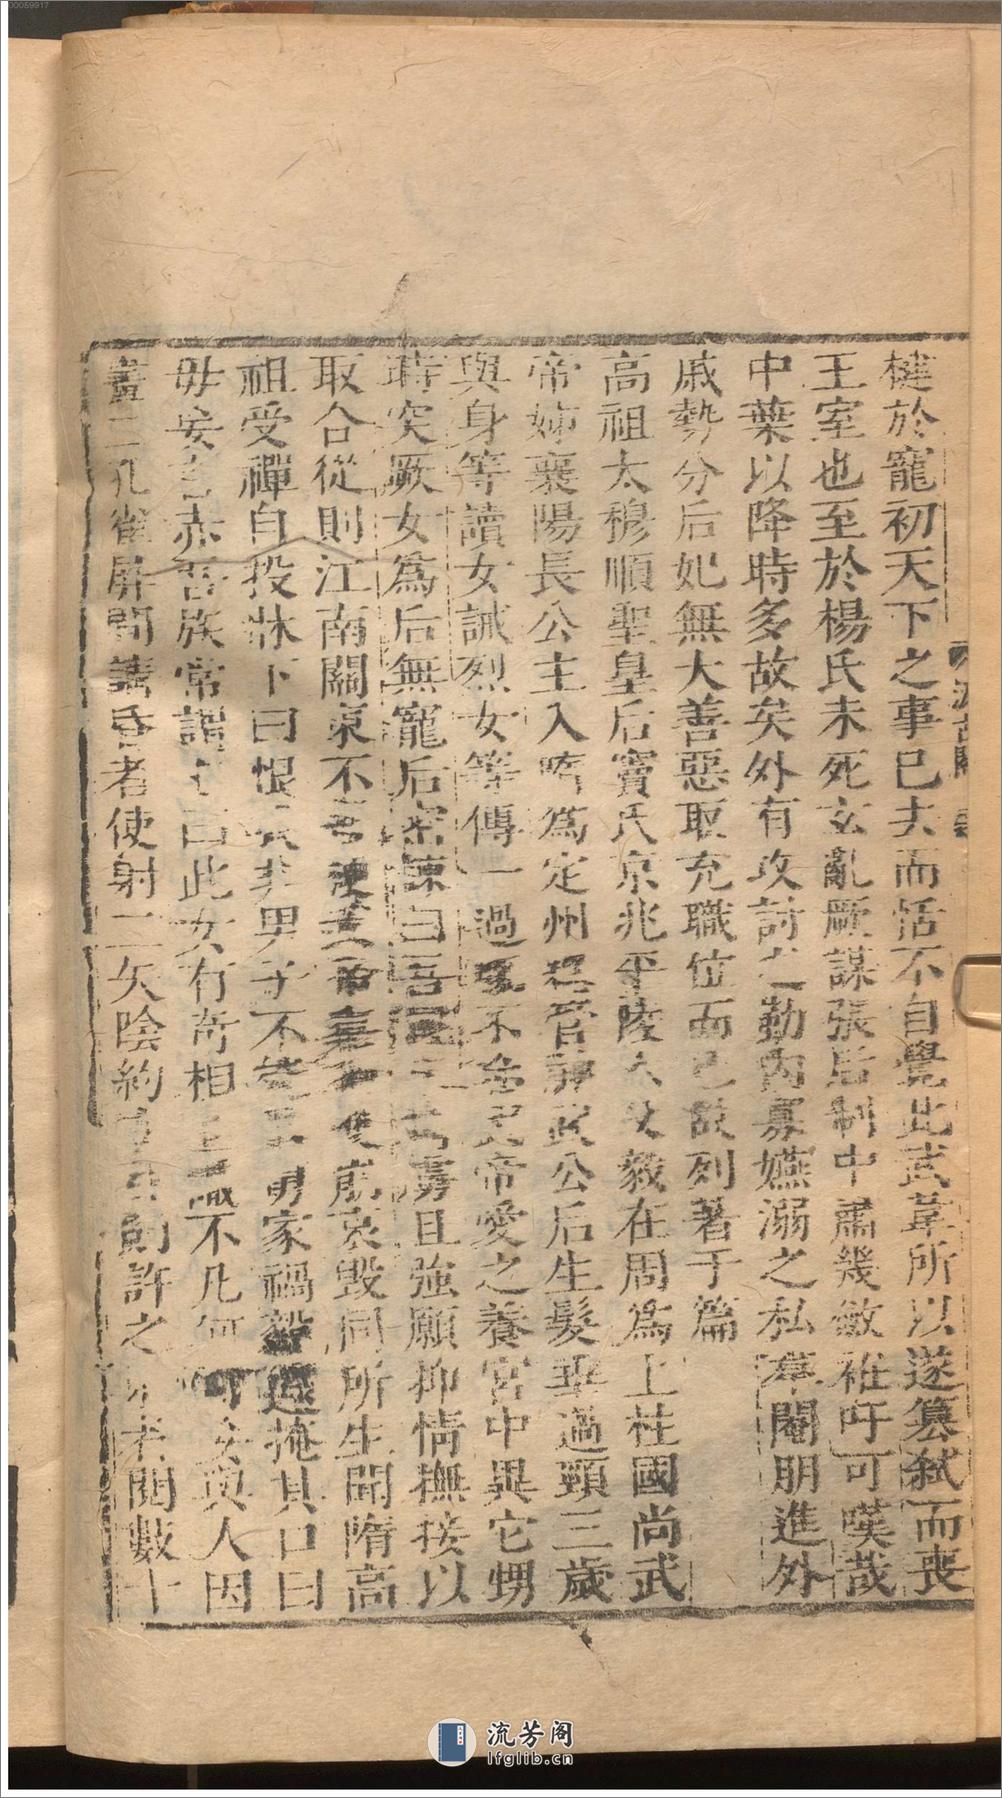 揵於寵初天下之事已去而恬不自覺此武韋所以遂篡弑而喪
王室也至於楊氏未死玄亂厥謀張后制中肅幾斂衽吁可嘆哉
中葉以降時多故矣外有攻討之勤內寡嬿溺之私羣閹朋進外
戚勢分后妃無大善惡取充職位而已故列著于篇
高祖太穆順聖皇后竇氏京兆平陵人父毅在周爲上柱國尚武
帝姊襄陽長公主入隋爲定州總管神武公后生髮垂過頸三歲
與身等讀女誡烈女等傳一過輒不忘武帝愛之養宮中異它甥
時突厥女爲后無寵后密諫曰吾國未舅且強願抑情撫接以
取合從則江南關東不哀毀同所生聞隋高
祖受禪自投牀下曰恨我非男子不能舅家禍毅遽掩其口曰
毋妄言赤吾族常謂主曰此女有奇相且識不凡何可妄與人因
畫二孔雀屏間請昏者使射二矢陰約中目則許之射者閱數十
流芳阁
lfglib.cn
00059917